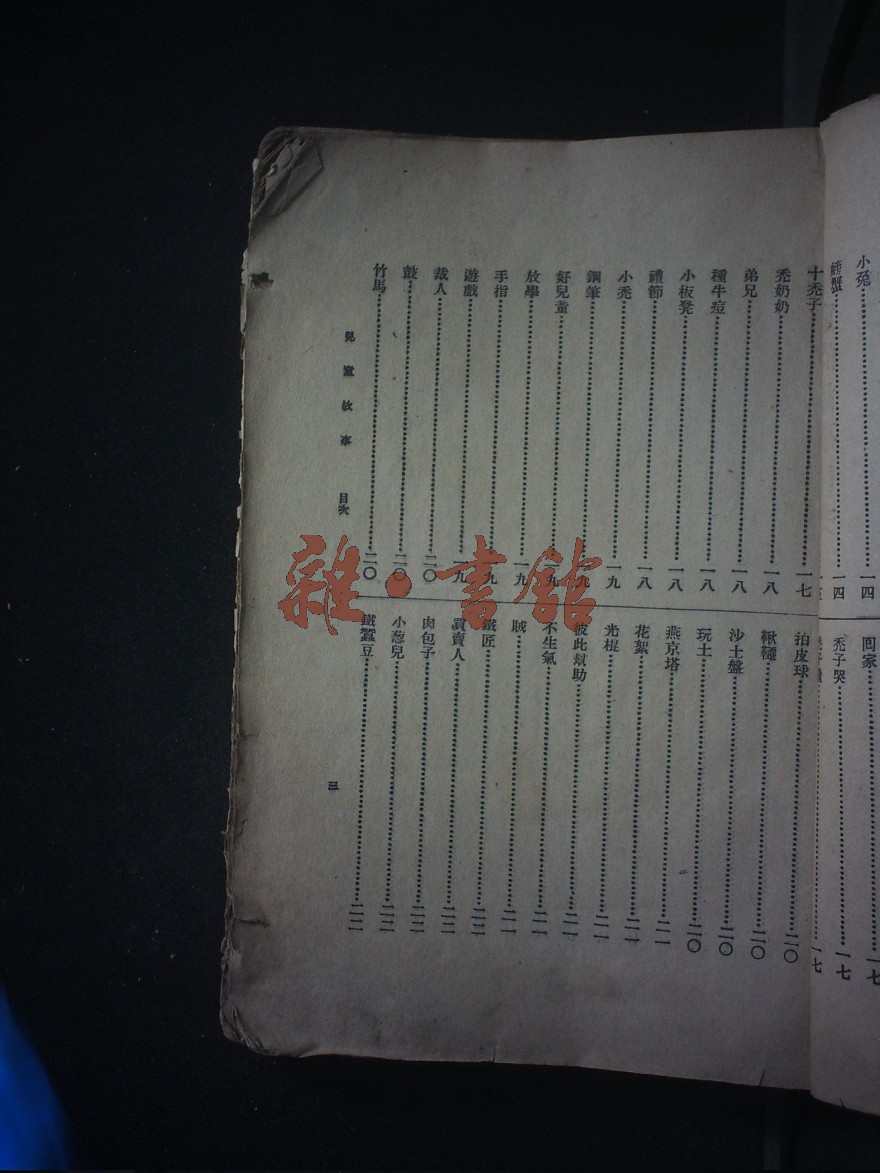 小兔……一四
螃蟹……一四
回家……一七
禿子哭……一七
十禿子……一七
禿奶奶……一八
弟兄……一八
種牛痘……一八
小板凳……一八
禮節……一八
小禿……一九
鋼筆……一九
好兒童……一九
放學……一九
手指……一九
遊戲……一九
裁人……二〇
鼓……二〇
竹馬……二〇
拍皮球……二〇
鞦韆……二〇
沙土盤……二〇
玩土……二〇
燕京塔……二一
花絮……二一
光棍……二一
彼此幫助……二一
不生氣……二一
賊……二一
鐵匠……二二
買賣人……二二
肉包子……二二
小葱兒……二二
鐵蠶豆……二二
兒童故事 目次
三
雜·書館